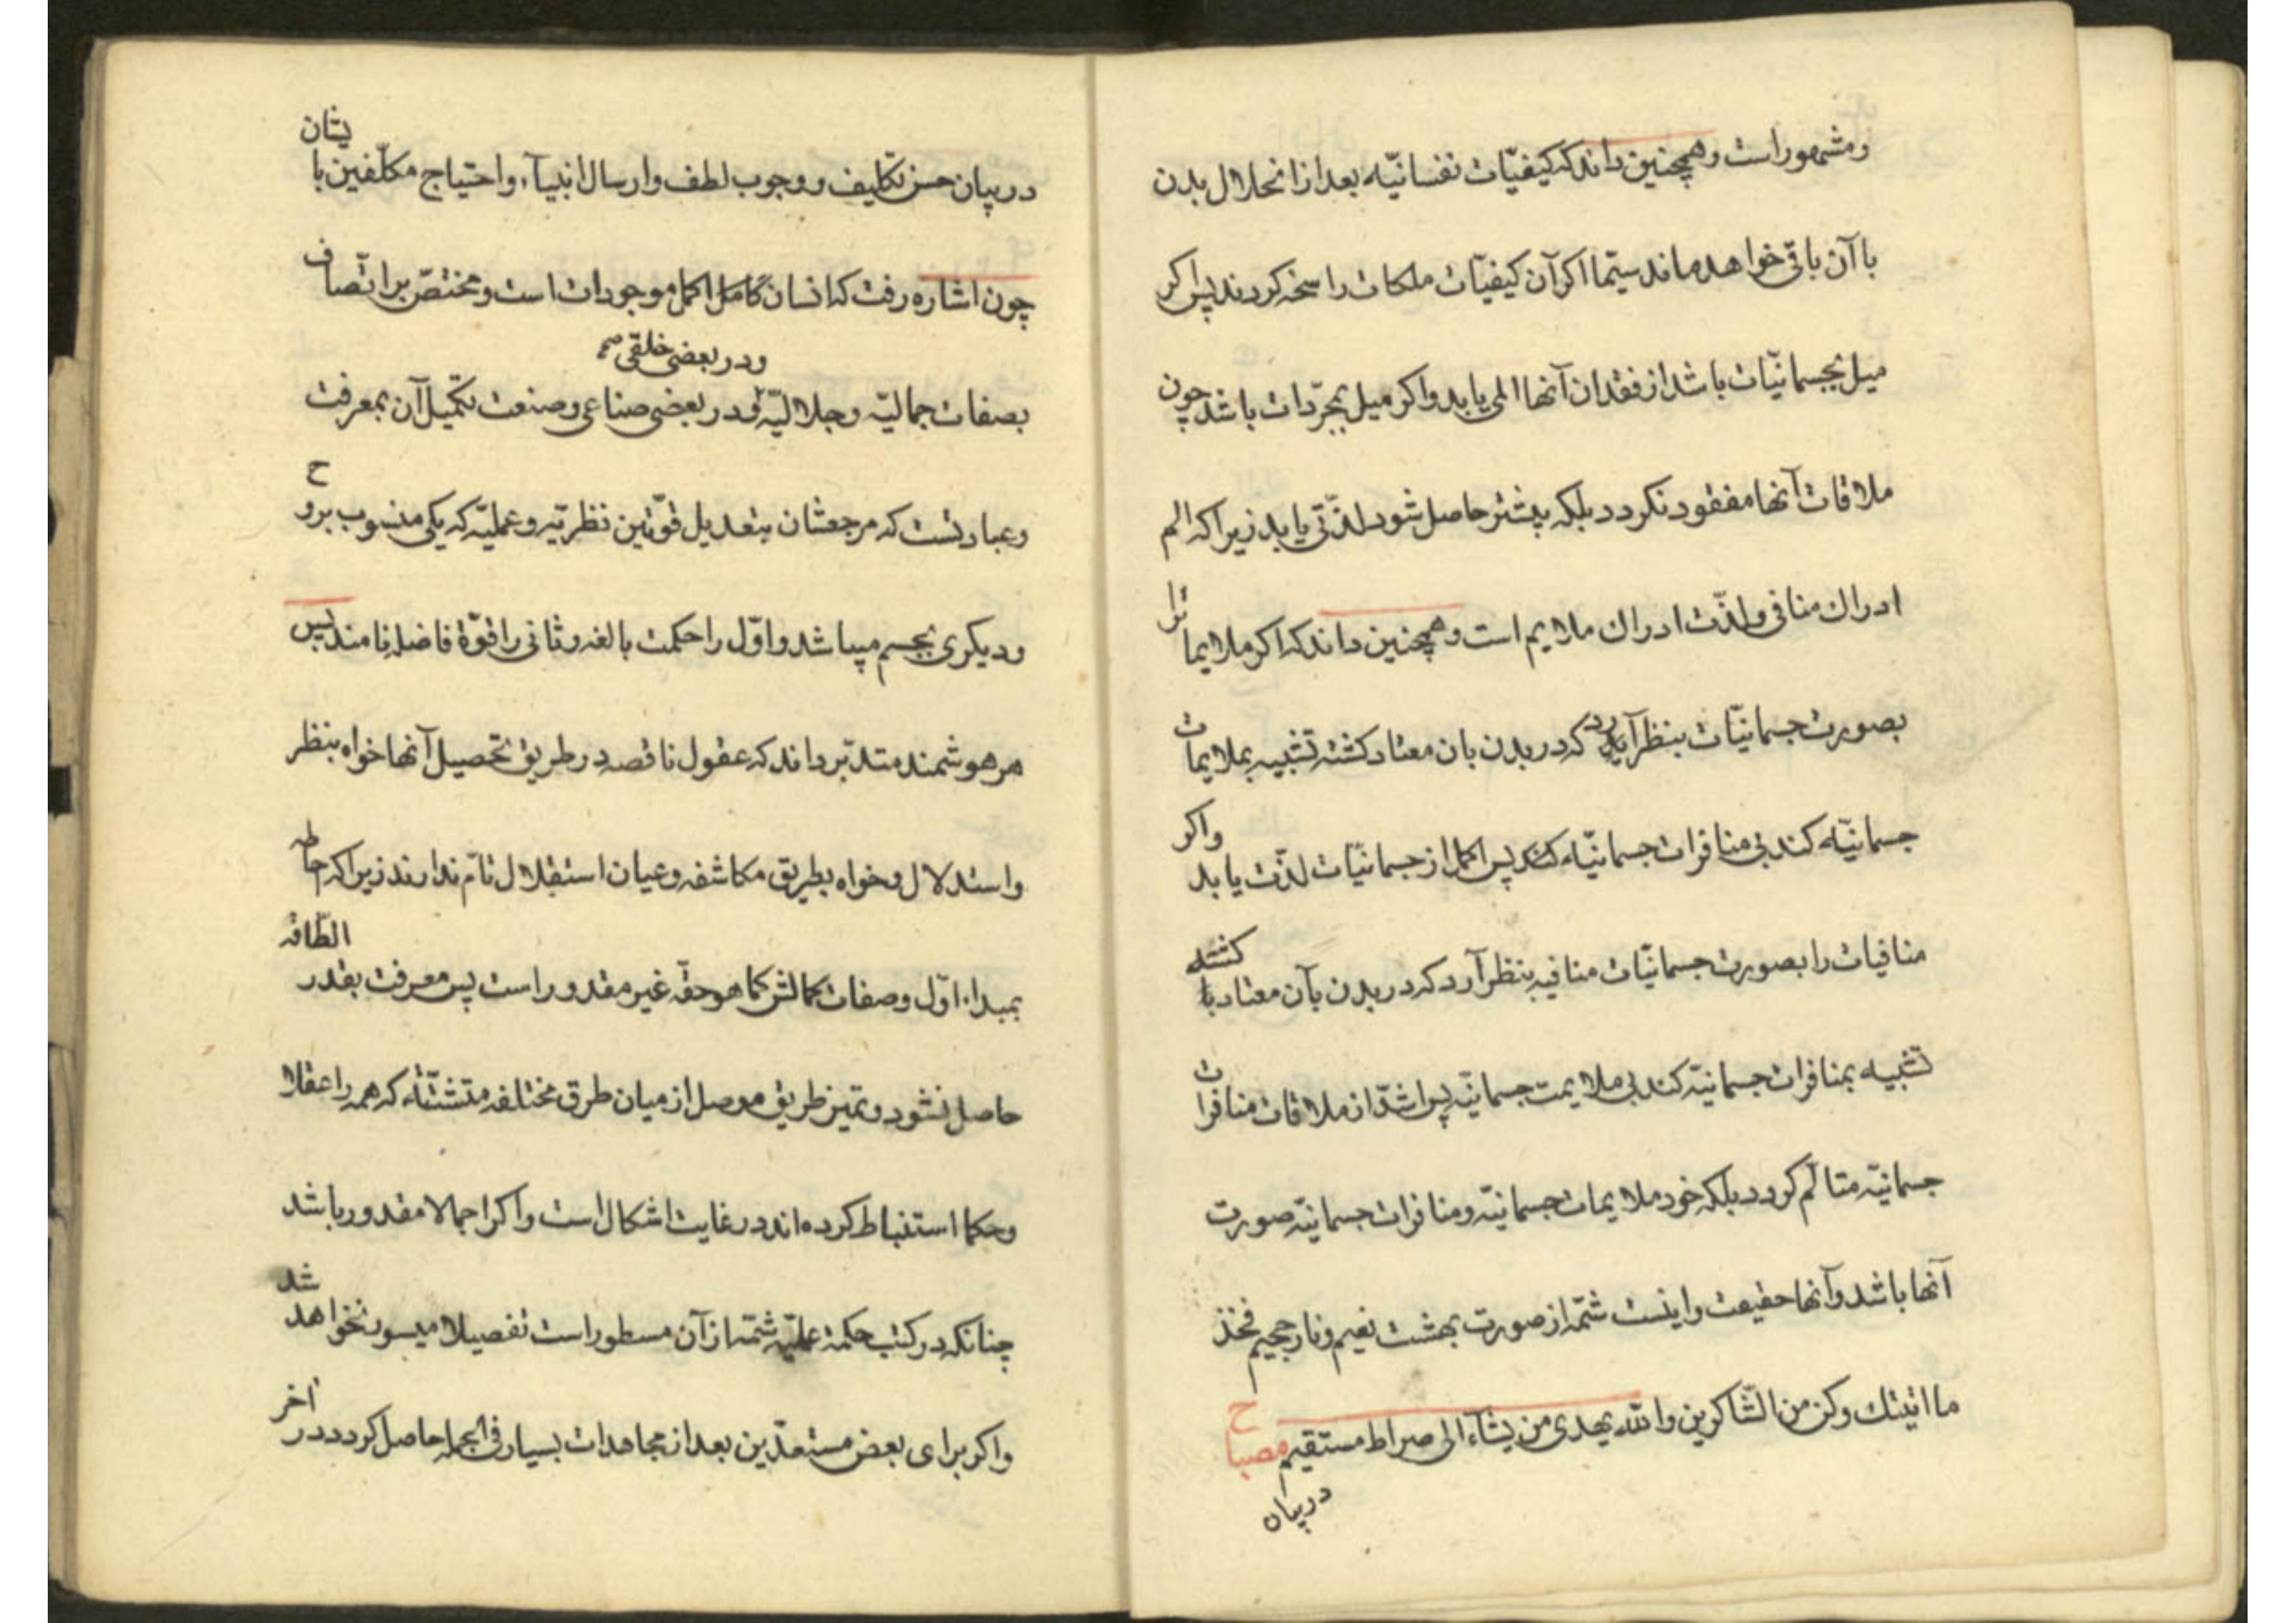 ومشهور است وهمچنین داند که کیفیّات نفسانیّه بعد از انحلال بدن
با آن باقی خواهد ماند سیّما اکر آن کیفیّات ملکات راسخه کردند پس اکر
میل بجسمانیّات باشد از فقدان آنها المی یابد واکر میل بمجرّدات باشد چون
ملاقات آنها مفقود نکردد بلکه بیشتر حاصل شود لذّتی یابد زیرا که الم
ادراك منافی ولذّت ادراك ملایم است وهمچنین داند که اکر ملایما ترا
بصورت جسمانیّات بنظر آرد که در بدن بان معتاد کشته تشبیه بملایمات
جسمانیّه کند بی منافرات جسمانیّه پس اکمل از جسمانیّات لذّت یابد واکر
منافیات را بصورت جسمانیّات منافیه بنظر آرد که در بدن بآن معتاد کشته
تشبیه بمنافرات جسمانیّه کند بی ملایمت جسمانیّه پس اشدّ از ملاقات منافرات
جسمانیّه متالّم کردد بلکه خود ملایمات جسمانیّه ومنافرات جسمانیّه صورت
آنها باشد وآنها حقیقت واینست شمّه از صورت بهشت نعیم ونار جحیم فخذ
ما اتیتك وکن من الشّاکرین والله یهدی من یشآء الی صراط مستقیم مصباح
در بیان
در بیان حسن تکلیف ووجوب لطف وارسال انبیآء واحتیاج مکلّفین بایشان
چون اشاره رفت که انسان کامل اکمل موجودات است ومختصّ بر اتّصاف
بصفات جمالیّه وجلالیّه ودر بعضی خلقی ودر بعضی صناعی وصنعت تکمیل آن بمعرفت
وعبادتست که مرجعشان بتعدیل قوّتین نظریّه وعملیّه که یکی منسوب بروح
ودیکری بجسم میباشد واوّل را حکمت بالغه وثانی را قوّة فاضله نامند پس
هر هوشمند متدبّر داند که عقول ناقصه در طریق تحصیل آنها خواه بنظر
واستدلال وخواه بطریق مکاشفه وعیان استقلال تامّ ندارند زیرا که احاطه
بمبداء اوّل وصفات کمالش کما هو حقّه غیر مقدور است پس معرفت بقدر الطّاقه
حاصل نشود وتمیز طریق موصل از میان طرق مختلفه متشتّته که همه را عقلا
وحکما استنباط کرده اند در غایت اشکال است واکر اجمالا مقدور باشد
چنانکه در کتب حکمة عملیّه شمّه از آن مسطور است تفصیلا میسور نخواهد شد
واکر برای بعض مستعدّین بعد از مجاهدات بسیار فی الجمله حاصل کردد در آخر